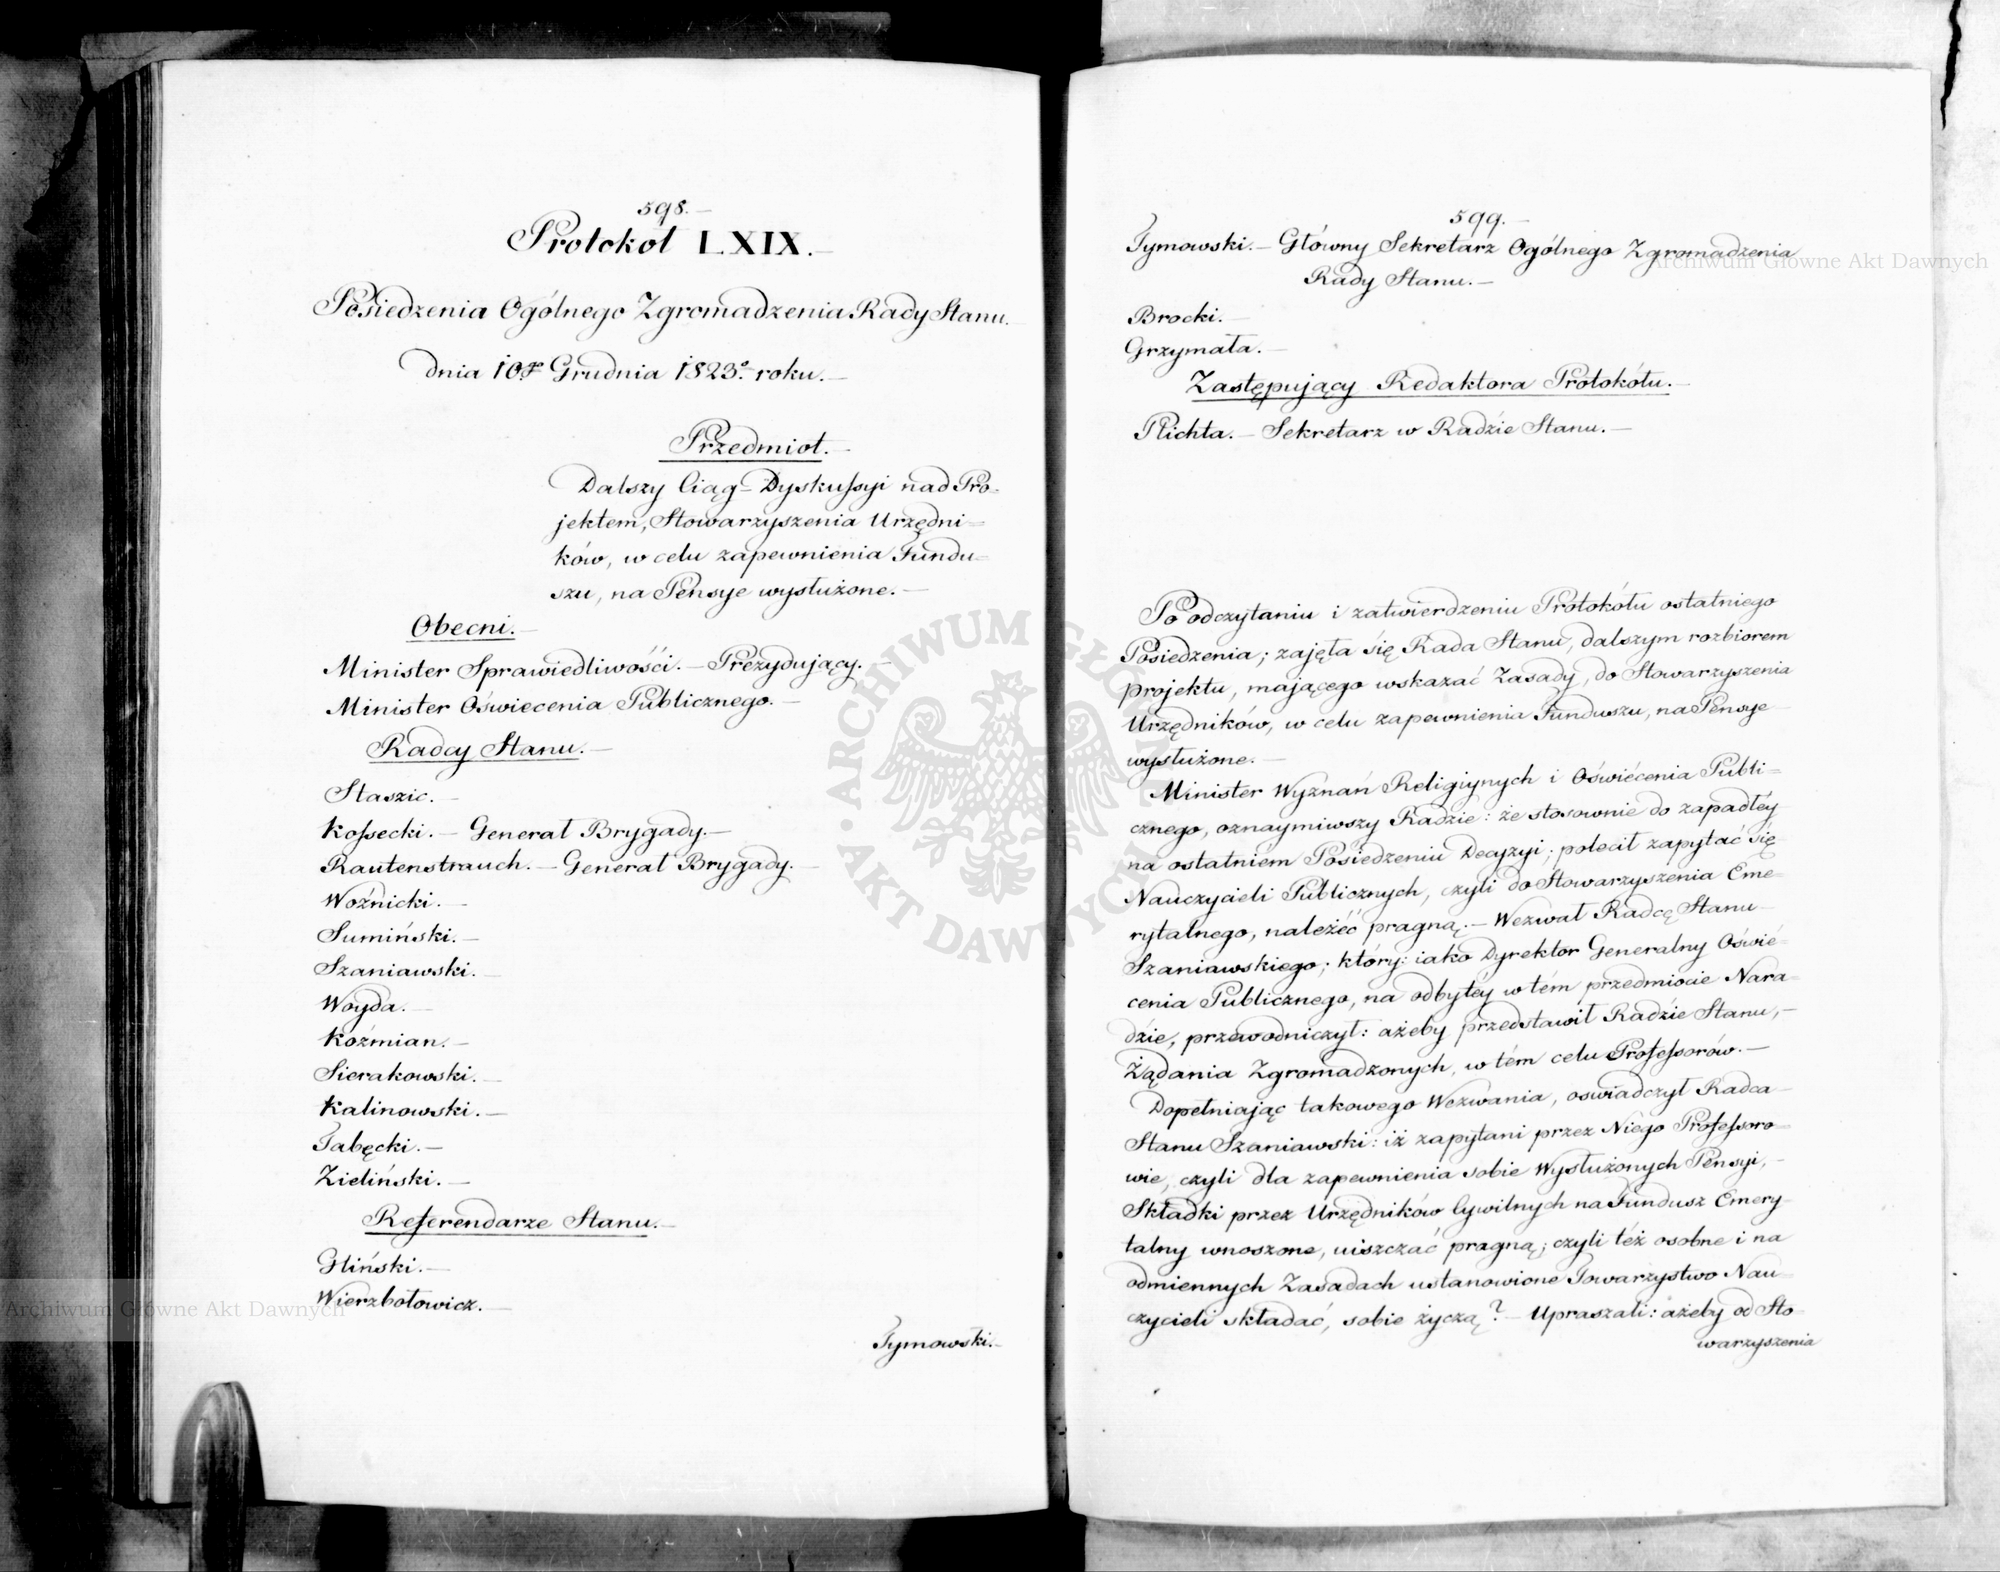 598.
Protokół LXIX.
Posiedzenia Ogólnego Zgromadzenia Rady Stanu.
dnia 10go Grudnia 1823o roku.
Przedmiot.
Dalszy Ciąg Dyskussyi nad Pro-
jektem, Stowarzyszenia Urzędni=
ków, w celu zapewnienia Fundu=
szu, na Pensye wysłużone.
Obecni.
Minister Sprawiedliwości. - Prezydujący.
Minister Oświecenia Publicznego.
Radcy Stanu.
Staszic.
Kossecki. - Generał Brygady.
Rautenstrauch. - Generał Brygady.
Woźnicki.
Sumiński.
Szaniawski.
Woyda.
Koźmian.
Sierakowski.
Kalinowski.
Tabęcki.
Zieliński.
Referendarze Stanu.
Gliński.
Wierzbołowicz.
Tymowski.
599.
Tymowski. - Główny Sekretarz Ogólnego Zgromadzenia
Rady Stanu.
Brocki.
Grzymała.
Zastępujący Redaktora Protokółu.
Plichta. - Sekretarz w Radzie Stanu.
Po odczytaniu i zatwierdzeniu Protokółu ostatniego
Posiedzenia; zajęła się Rada Stanu, dalszym rozbiorem
projektu, mającego wskazać Zasady, do Stowarzyszenia
Urzędników, w celu zapewnienia Funduszu, na Pensye
wysłużone.
Minister Wyznań Religiynych i Oświécenia Publi=
cznego, oznaymiwszy Radzie: że stosownie do zapadłéy
na ostatniém Posiedzeniu Decyzyi; polecił zapytać się
Nauczycieli Publicznych, czyli do Stowarzyszenia Eme=
rytalnego, należéć pragną. - Wezwał Radcę Stanu
Szaniawskiego; który: iako Dyrektor Generalny Oświé=
cenia Publicznego, na odbytéy w tém przedmiocie Nara=
dzie, przewodniczył: ażeby przedstawił Radzie Stanu,
Żądania Zgromadzonych, w tém celu Professorów.
Dopełniając takowego Wezwania, oświadczył Radca
Stanu Szaniawski: iż zapytani przez Niego Professoro=
wie, czyli dla zapewnienia sobie Wysłużonych Pensyi,
Składki przez Urzędników Cywilnych na Fundusz Emery-
talny wnoszone, uiszczać pragną; czyli téż osobne i na
odmiennych Zasadach ustanowione Towarzystwo Nau=
czycieli składać, sobie życzą? - Upraszali: ażeby od Sto=
warzyszenia
Archiwum Główne Akt Dawnych
Archiwum Główne Akt Dawnych
ARCHIWUM GŁÓWNE AKT DAWNYCH